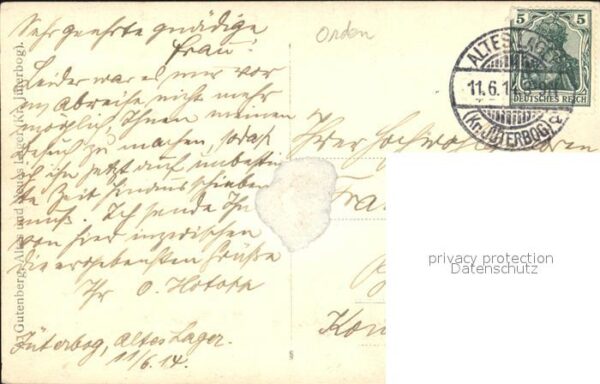 Sehr geehrte gnädige
Frau!
Leider war es mir vor
m/ Abreise nicht mehr
möglich, Ihnen meinen
Besuch zu machen, sodaß
ich ihn jetzt auf unbestim
te Zeit hinausschieben
muß. Ich sende Ihnen
von hier inzwischen
die ergebensten Grüße
Ihr O.
Jüterbog, Altes Lager.
11/6.14.
Orden
Ihrer Hochwohlgeboren
Fra
5 5
DEUTSCHES REICH
ALTES LAGER
11.6.14
(Kr. JÜTERBOG)
privacy protection
Datenschutz
Gutenberg, Altes und Neues Lager (Kr. Jüterbog).